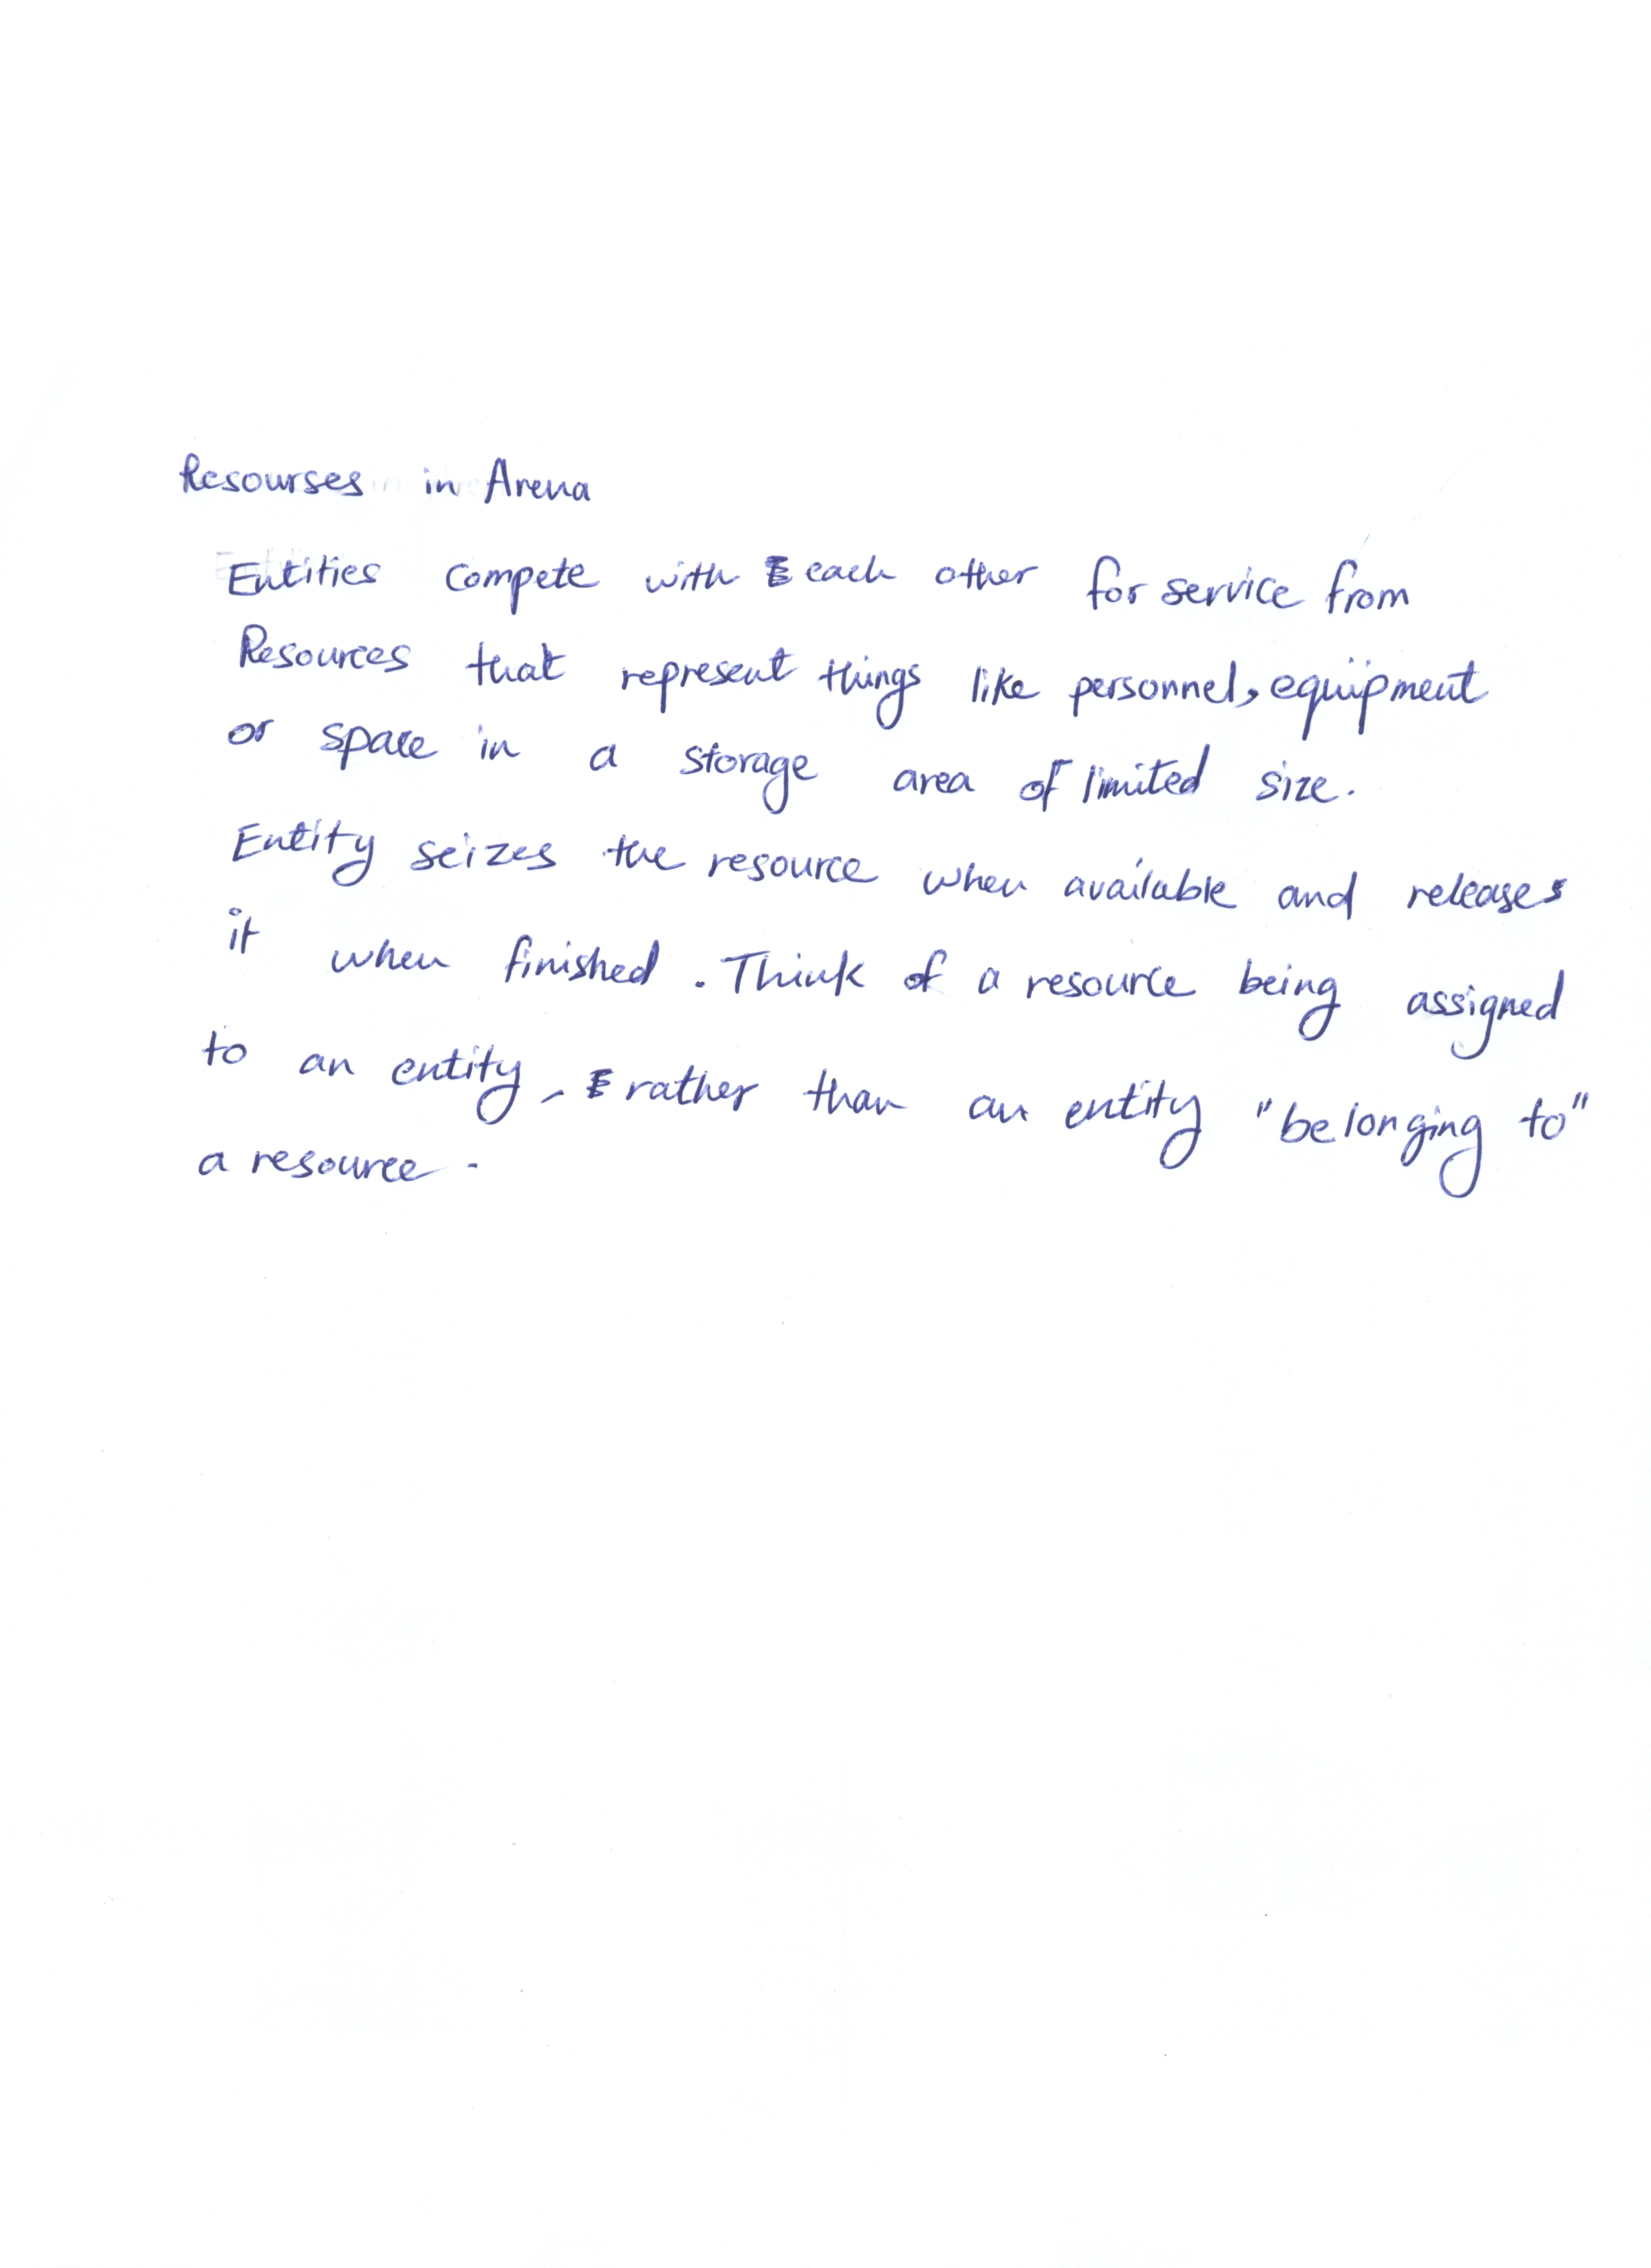 Resourses in Arena
Entities compete with each other for service from
Resources that represent things like personnel, equipment
or space in a storage area of limited size.
Entity seizes the resource when available and releases
it when finished. Think of a resource being assigned
to an entity, rather than an entity "belonging to"
a resource.